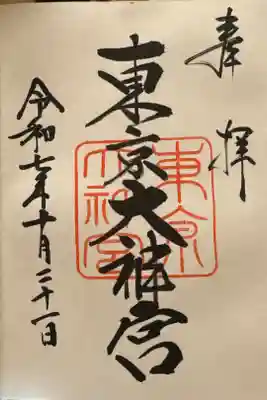 奉拝
東京大神宮
東京大神宮
令和七年十月二十一日